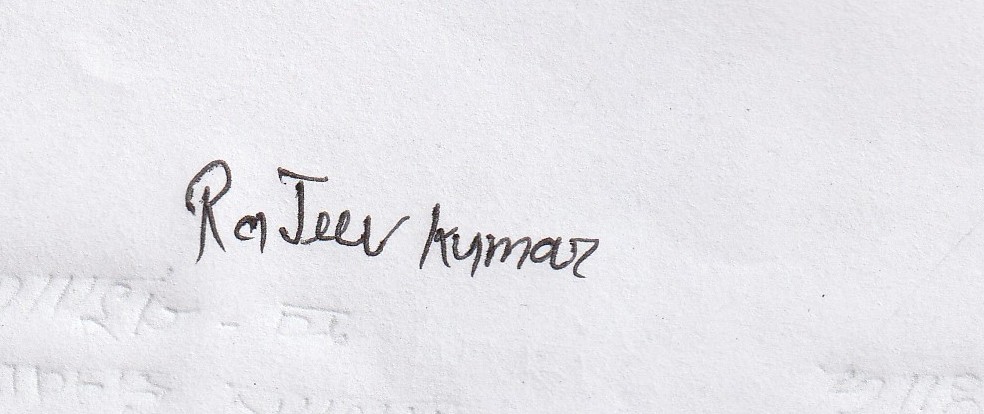 RaJeev kumar